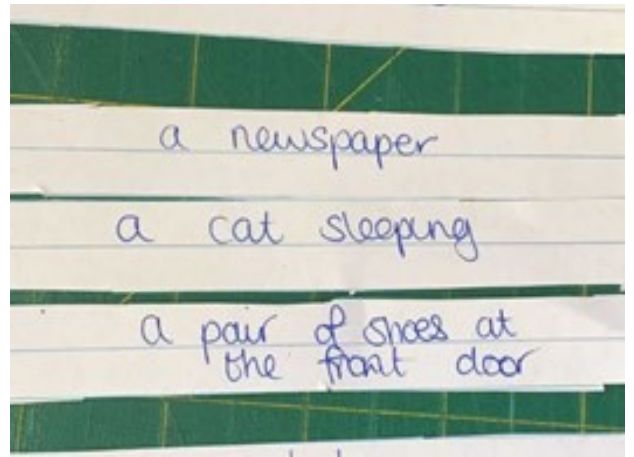 a newspaper
a cat sleeping
a pair of shoes at
the front door